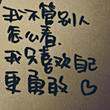 我不管別人
怎么看
我只喜欢自己
更勇敢